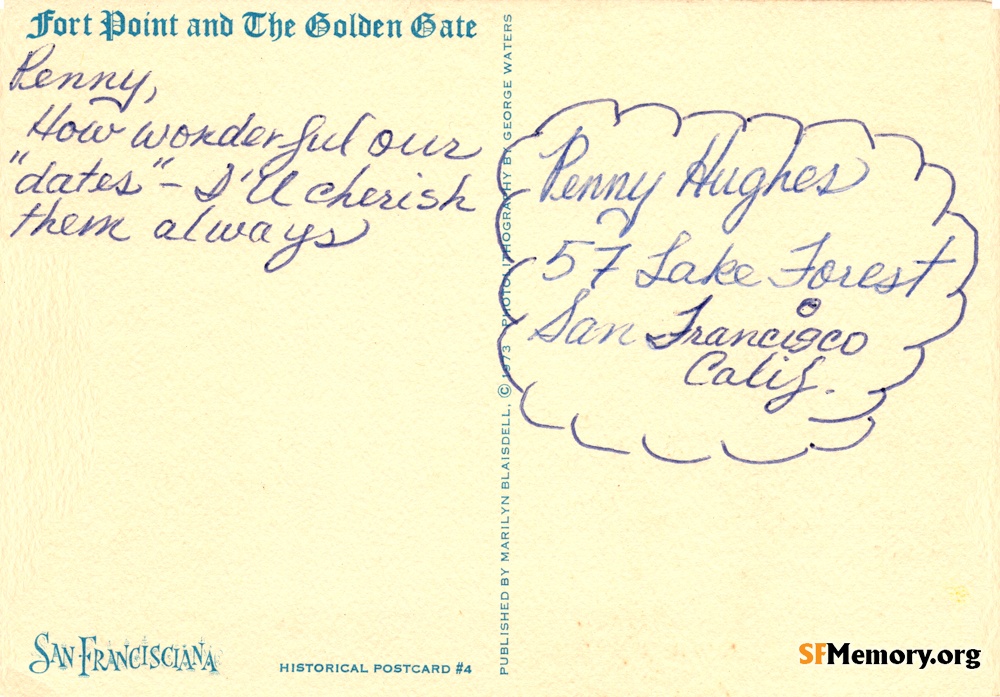 Fort Point and The Golden Gate
Penny,
How wonderful our
"dates" - I'll cherish
them always
PUBLISHED BY MARILYN BLAISDELL, © 1973 PHOTOLITHOGRAPHY BY GEORGE WATERS
Penny Hughes
57 Lake Forest
San Francisco
Calif.
SAN FRANCISCIANA
HISTORICAL POSTCARD #4
SFMemory.org